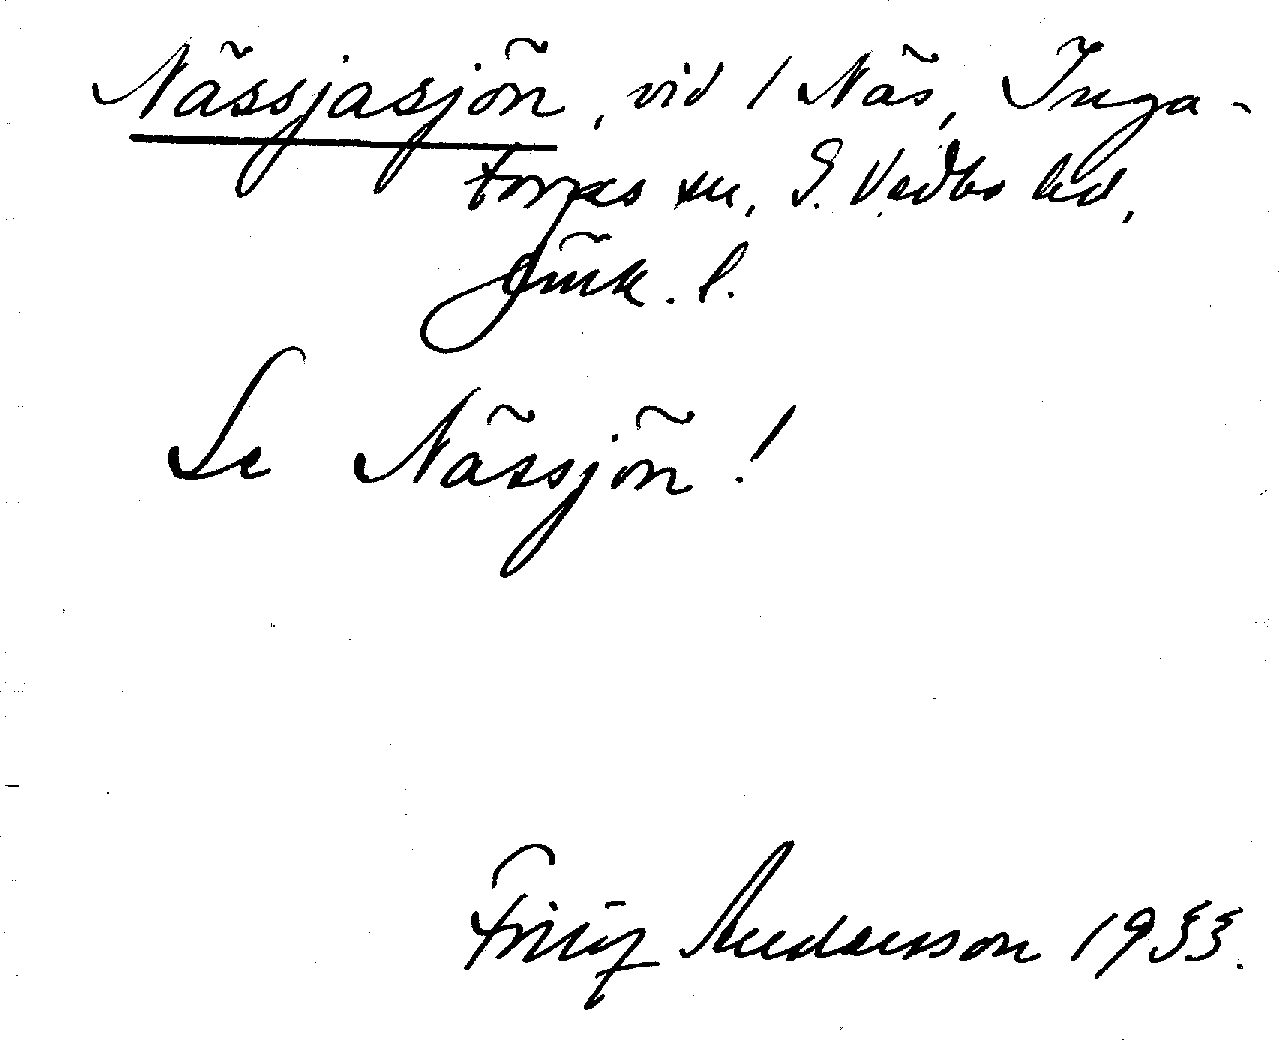 Nässjasjön, vid / Näs, Inga-
torps sn, S. Vedbo hd,
Jönk. l.
Se Nässjön!
Fritiof Andersson 1933.